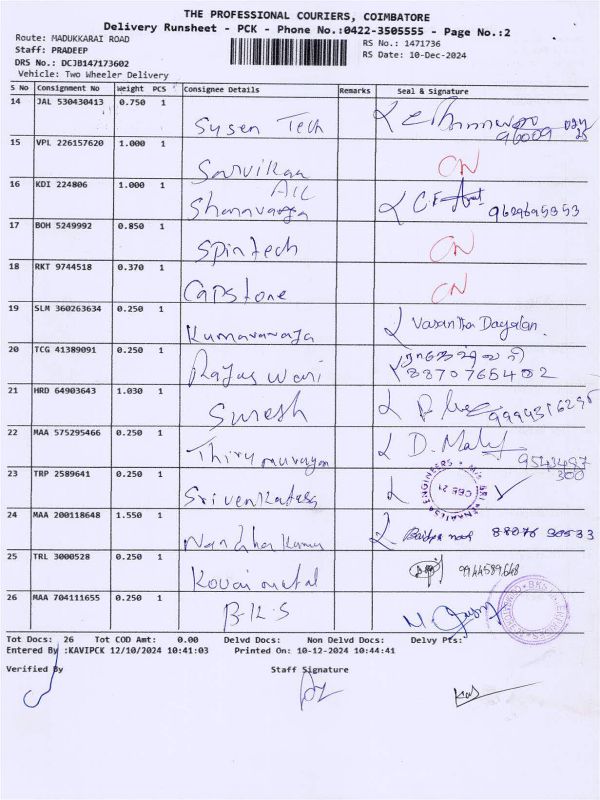 THE PROFESSIONAL COURIERS, COIMBATORE
Delivery Runsheet - PCK - Phone No.:0422-3505555 - Page No.:2
Route: MADUKKARAI ROAD
RS No.: 1471736
Staff: PRADEEP
RS Date: 10-Dec-2024
DRS No.: DCJB147173602
Vehicle: Two Wheeler Delivery
S No Consignment No Weight PCS Consignee Details Remarks Seal & Signature
14 JAL 530430413 0.750 1 Sysen Tech
15 VPL 226157620 1.000 1 CN
16 KDI 224806 1.000 1 9629695353
17 BOH 5249992 0.850 1 Spintech CN
18 RKT 9744518 0.370 1 Capstone CN
19 SLM 360263634 0.250 1 Kumararaja Vasantha Dayalan.
20 TCG 41389091 0.250 1 Rajeswari 8870765402
21 HRD 64903643 1.030 1 Suresh
22 MAA 575295466 0.250 1 Thirumurugan 9543487
300
23 TRP 2589641 0.250 1 Srivenkatesa
24 MAA 200118648 1.550 1 Nandhakumar 88076 30533
25 TRL 3000528 0.250 1 Kovai metal 9944589648
26 MAA 704111655 0.250 1 B.K.S
Tot Docs: 26 Tot COD Amt: 0.00 Delvd Docs: Non Delvd Docs: Delvy Pts:
Entered By :KAVIPCK 12/10/2024 10:41:03 Printed On: 10-12-2024 10:44:41
Verified By Staff Signature